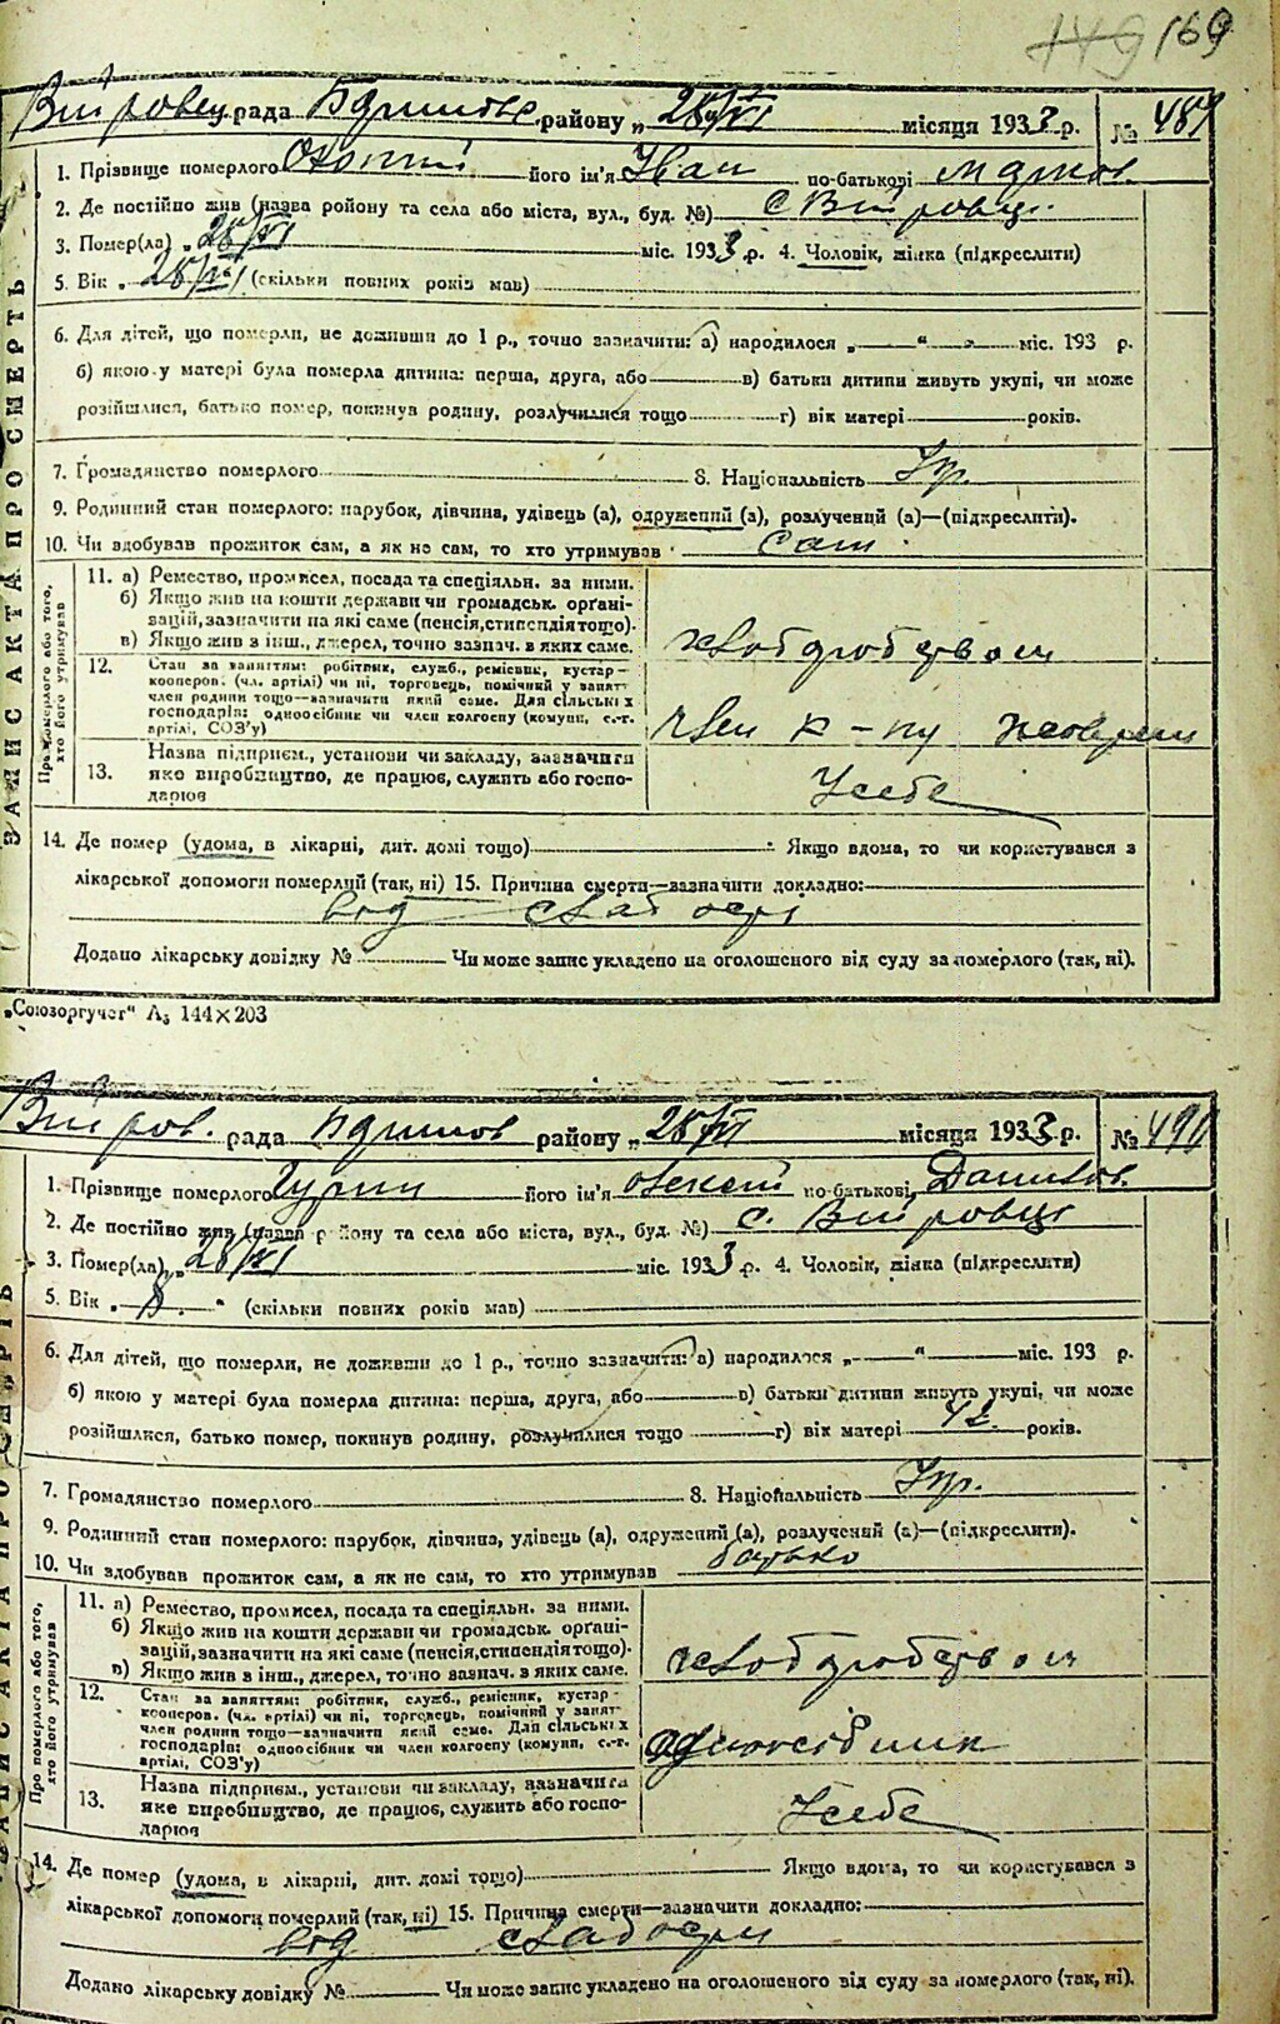 169
рада району „28/VI місяця 1933 р. №
1. Прізвище померлого його ім'я Іван по-батькові
2. Де постійно жив (назва району та села або міста, вул., буд. №) с
3. Помер(ла) „28/VI міс. 1933 р. 4. Чоловік, жінка (підкреслити)
5. Вік „ (скільки повних років мав)
6. Для дітей, що померли, не доживши до 1 р., точно зазначити: а) народилося „ “ міс. 193 р.
б) якою у матері була померла дитина: перша, друга, або в) батьки дитини живуть укупі, чи може
розійшлися, батько помер, покинув родину, розлучилися тощо г) вік матері років.
7. Громадянство померлого 8. Національність Укр.
9. Родинний стан померлого: парубок, дівчина, удівець (а), одружений (а), розлучений (а)—(підкреслити).
10. Чи здобував прожиток сам, а як не сам, то хто утримував сам
ЗАПИС АКТА ПРО СМЕРТЬ
Про померлого або того, хто його утримував
11. а) Ремество, промисел, посада та спеціяльн. за ними.
б) Якщо жив на кошти держави чи громадськ. орґані-
зацій, зазначити на які саме (пенсія, стипендія тощо).
в) Якщо жив з інш., джерел, точно зазнач. з яких саме.
хлібробством
12. Стан за заняттям: робітник, служб., ремісник, кустар-
кооперов. (чл. артілі) чи ні, торговець, помічний у занят.
член родини тощо—зазначити який саме. Для сільських
господарів: одноосібник чи член колгоспу (комуни, с.-г.
артілі, СОЗ'у)
член к-пу
13. Назва підприєм., установи чи закладу, зазначити
яке виробництво, де працює, служить або госпо-
дарює
У себе
14. Де помер (удома, в лікарні, дит. домі тощо) Якщо вдома, то чи користувався з
лікарської допомоги померлий (так, ні) 15. Причина смерти—зазначити докладно:
від слабости
Додано лікарську довідку № Чи може запис укладено на оголошеного від суду за померлого (так, ні).
„Союзоргучет“ А₅ 144×203
рада району „28/VI місяця 1933 р. №
1. Прізвище померлого його ім'я по-батькові Данилов.
2. Де постійно жив (назва району та села або міста, вул., буд. №) с.
3. Помер(ла) „28/VI міс. 1933 р. 4. Чоловік, жінка (підкреслити)
5. Вік „ 8. “ (скільки повних років мав)
6. Для дітей, що померли, не доживши до 1 р., точно зазначити: а) народилося „ “ міс. 193 р.
б) якою у матері була померла дитина: перша, друга, або в) батьки дитини живуть укупі, чи може
розійшлися, батько помер, покинув родину, розлучилися тощо г) вік матері 42 років.
7. Громадянство померлого 8. Національність Укр.
9. Родинний стан померлого: парубок, дівчина, удівець (а), одружений (а), розлучений (а)—(підкреслити).
10. Чи здобував прожиток сам, а як не сам, то хто утримував батько
ЗАПИС АКТА ПРО СМЕРТЬ
Про померлого або того, хто його утримував
11. а) Ремество, промисел, посада та спеціяльн. за ними.
б) Якщо жив на кошти держави чи громадськ. орґані-
зацій, зазначити на які саме (пенсія, стипендія тощо).
в) Якщо жив з інш., джерел, точно зазнач. з яких саме.
хлібробством
12. Стан за заняттям: робітник, служб., ремісник, кустар-
кооперов. (чл. артілі) чи ні, торговець, помічний у занят.
член родини тощо—зазначити який саме. Для сільських
господарів: одноосібник чи член колгоспу (комуни, с.-г.
артілі, СОЗ'у)
одноосібник
13. Назва підприєм., установи чи закладу, зазначити
яке виробництво, де працює, служить або госпо-
дарює
У себе
14. Де помер (удома, в лікарні, дит. домі тощо) Якщо вдома, то чи користувався з
лікарської допомоги померлий (так, ні) 15. Причина смерти—зазначити докладно:
від слабости
Додано лікарську довідку № Чи може запис укладено на оголошеного від суду за померлого (так, ні).